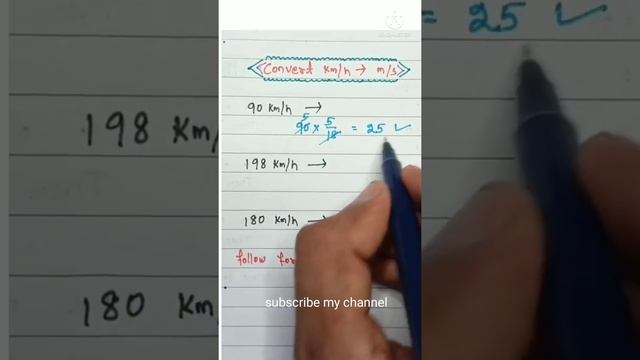 Convert Km/h → m/s
90 Km/h →
5
90 × 5/18 = 25 ✓
198 Km/h →
180 Km/h →
follow for
subscribe my channel
= 25 ✓
198 Km/h
180 Km